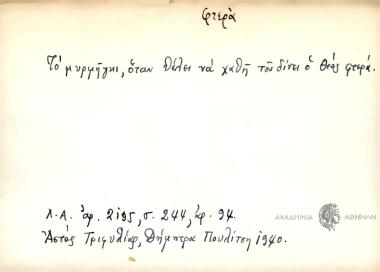 φτερὰ
Τὸ μυρμήγκι, ὅταν θέλει νὰ χαθῇ τοῦ δίνει ὁ Θεός φτερά.
Λ.Α. ἀρ. 2195, σ. 244, ἀρ. 94.
Ἀετός Τριφυλίας, Δήμητρα Πουλίτση 1940.
ΑΚΑΔΗΜΙΑ ΑΘΗΝΩΝ